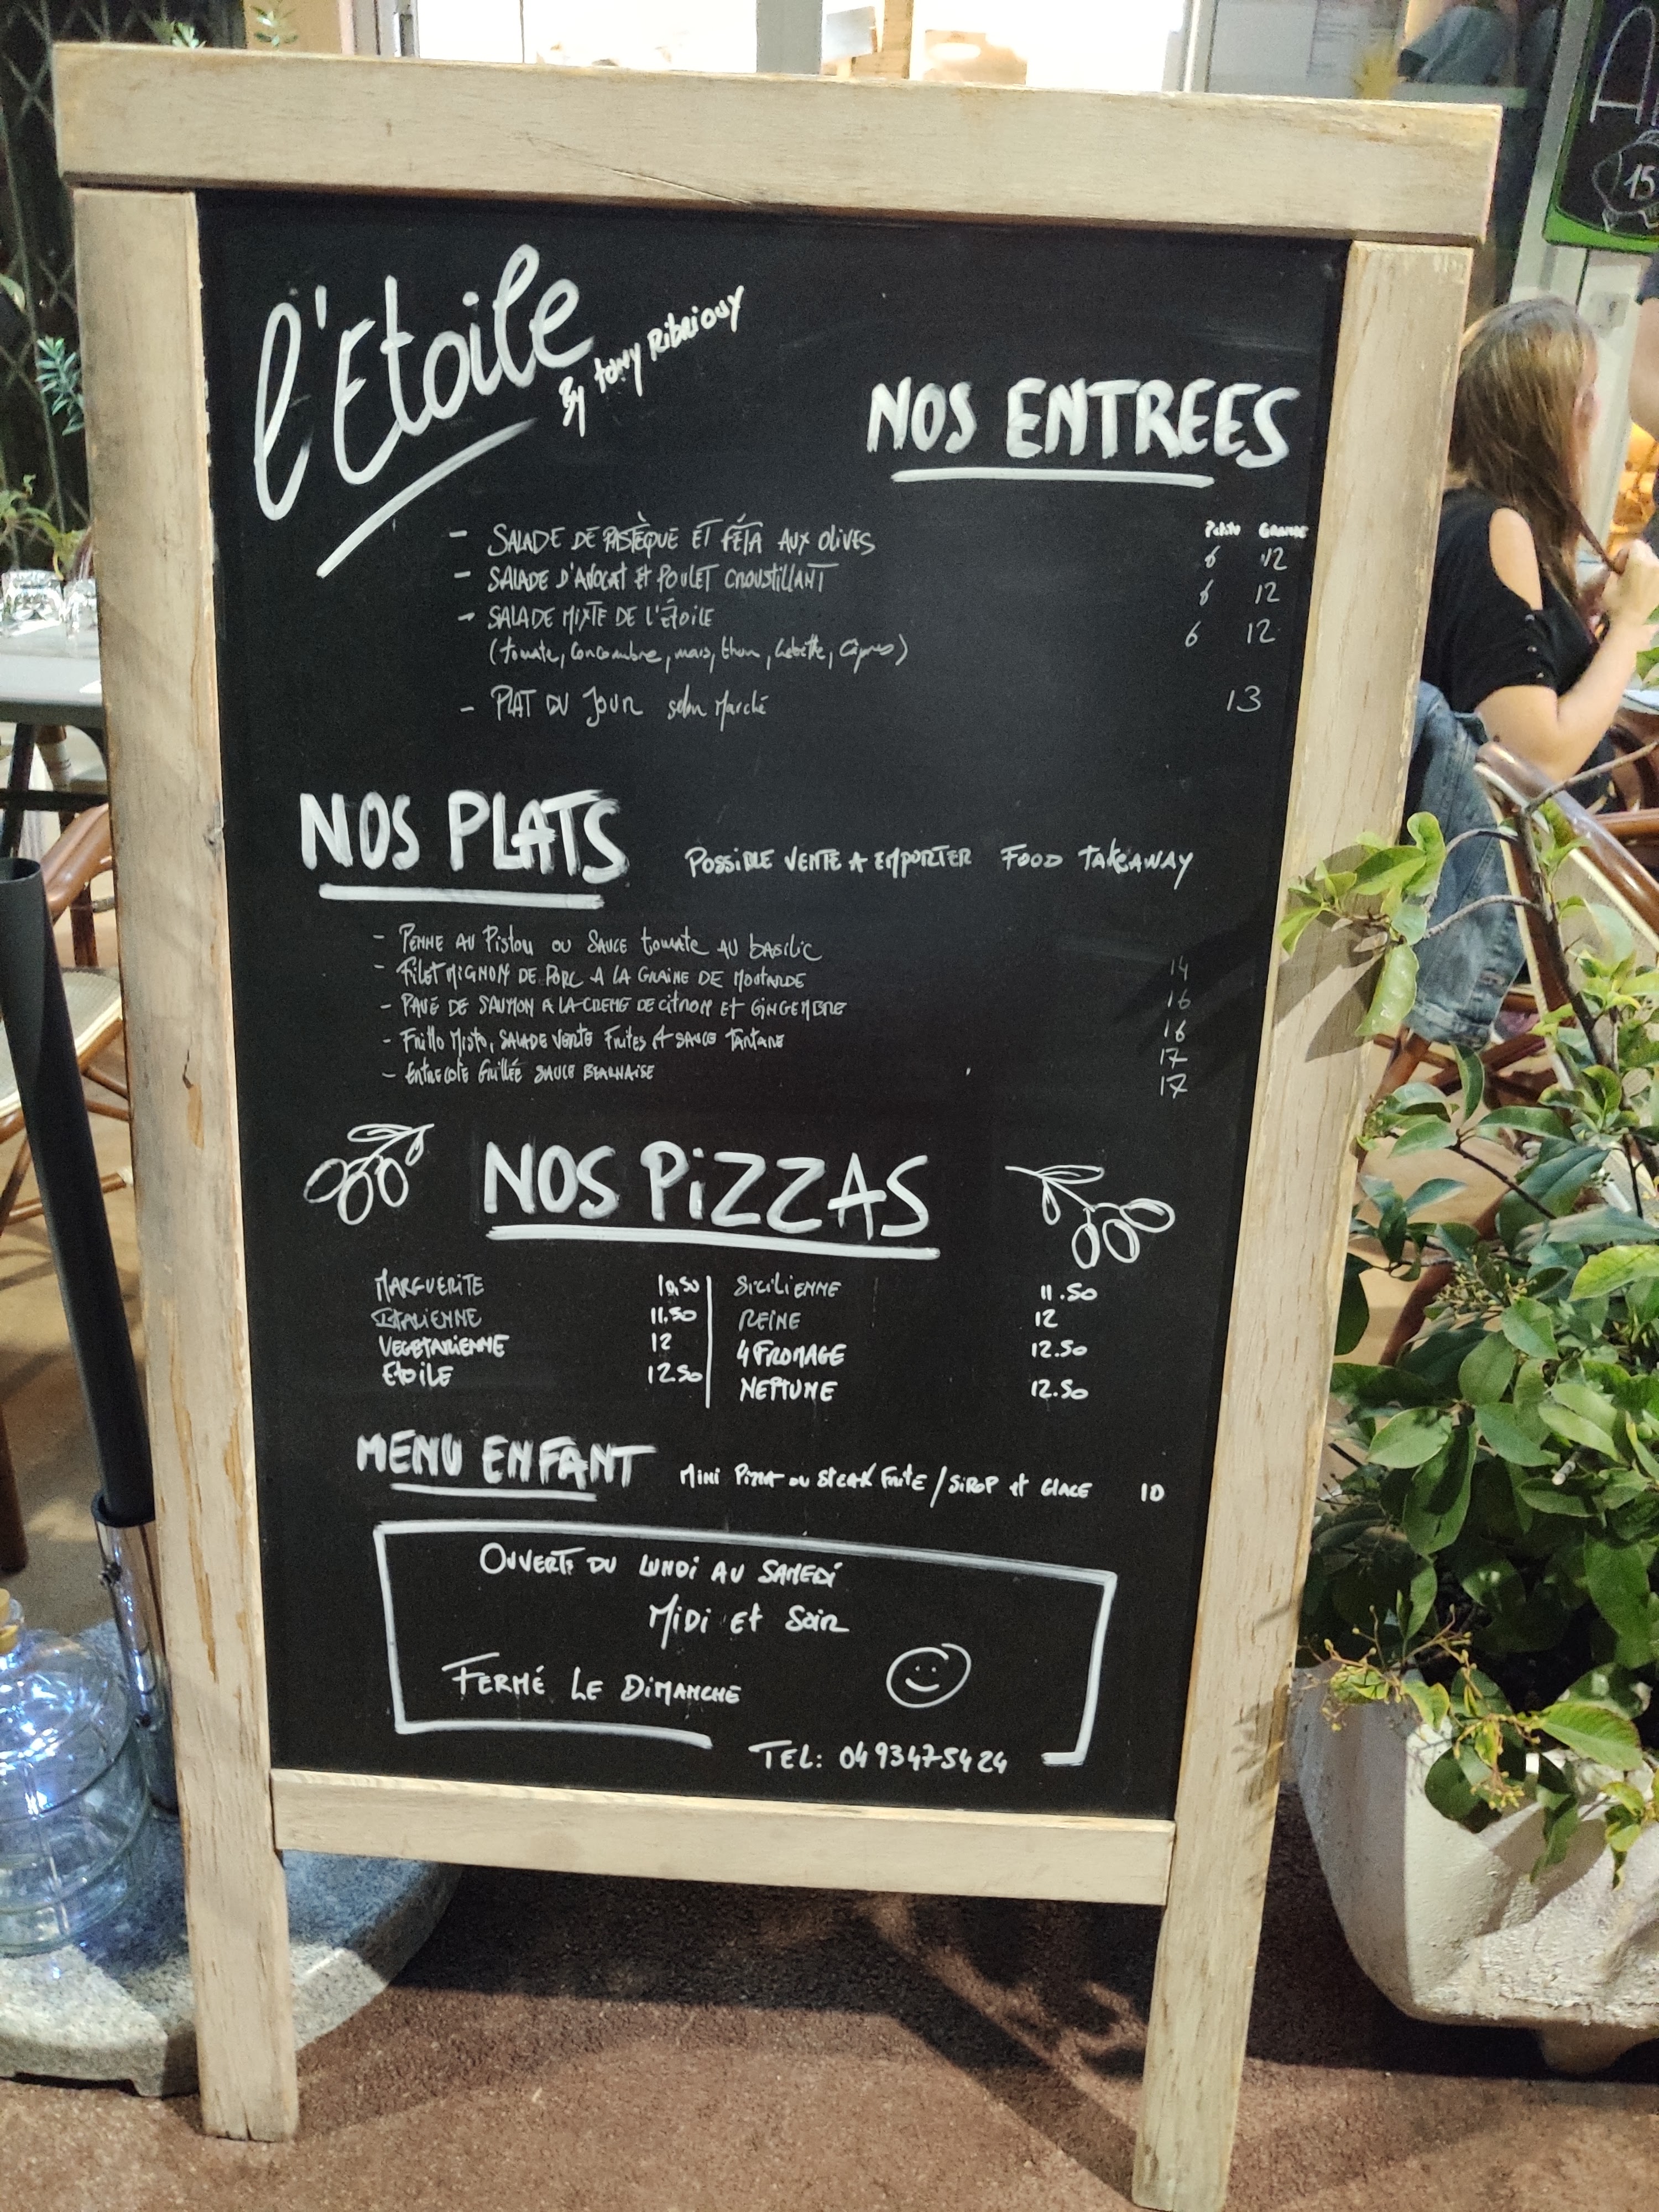 l'Etoile
By tony Ribriouy
NOS ENTREES
Petite Grande
- SALADE DE PASTÈQUE ET FÉTA AUX OLIVES 6 12
- SALADE D'AVOCAT ET POULET CROUSTILLANT 6 12
- SALADE MIXTE DE L'ÉTOILE 6 12
(tomate, Concombre, mais, thon, Cebette, Capres)
- PLAT DU JOUR selon Marché 13
NOS PLATS POSSIBLE VENTE A EMPORTER FOOD TAKEAWAY
- PENNE AU Pistou OU SAUCE tomate AU basilic 14
- FILET MIGNON DE PORC A LA GRAINE DE MOUTARDE 16
- PAVÉ DE SAUMON A LA CREME DE CITRON ET GINGEMBRE 16
- Fritto Misto, SALADE VERTE Frites & SAUCE TARTARE 17
- ENTRECOTE Grillée SAUCE BEARNAISE 17
NOS PiZZAS
MARGUERITE 10.50 SiCiLiENNE 11.50
ITALIENNE 11.50 REINE 12
VEGETARIENNE 12 4 FROMAGE 12.50
EtoiLE 12.50 NEPTUNE 12.50
MENU ENFANT MiNi PIZZA OU STEAK FRITE / SiROP et GLACE 10
OUVERT DU LUNDi AU SAMEDi
MiDi Et Soir
FERMÉ LE DIMANCHE
TEL: 04 93 47 54 24
15